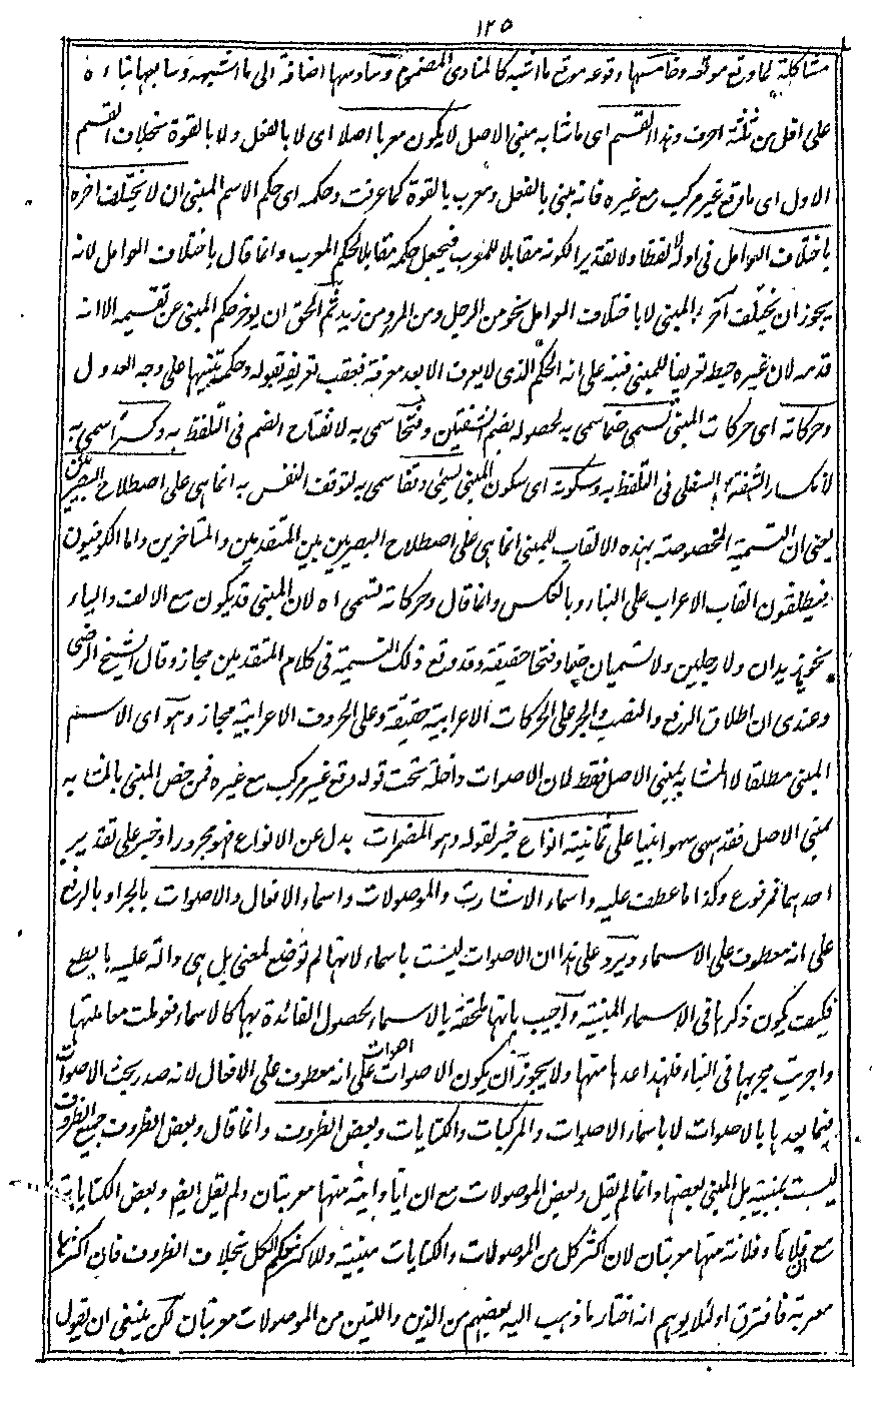 ١٢٥
مشاكلة لما وقع موقعه وخامسها وقوعه موقع ما اشبه كالمنادى المضموم وسادسها اضافة الى ما اشبهه وسابعها بناءه
على اقل من ثلثة احرف وهذا القسم اى ما شابه مبنى الاصل لا يكون معربا اصلا اى لا بالفعل ولا بالقوة بخلاف القسم
الاول اى ما وقع غير مركب مع غيره فانه مبنى بالفعل ومعرب بالقوة كما عرفت وحكمه اى حكم الاسم المبنى ان لا يختلف اخره
باختلاف العوامل فى اوله لا لفظا ولا تقديرا لكونه مقابلا للمعرب فيجعل حكمه مقابلا لحكم المعرب وانما قال باختلاف العوامل لانه
يجوز ان يختلف آخر المبنى لا باختلاف العوامل نحو من الرجل ومن المرء ومن زيد ثم الحق ان يؤخر حكم المبنى عن تقسيمه الا انه
قدمه لان غيره حيط تعريفا للمبنى فنبه على انه الحكم الذى لا يعرف الا بعد معرفة فبعقب تعريفه بقوله وحكمه تنبيها على وجه العدول
وحركاته اى حركات المبنى تسمى ضما سمى به لحصوله بضم الشفتين وفتحا سمى به لانفتاح الفم فى التلفظ به وكسرا سمى به
لانكسار الشفة السفلى فى التلفظ به وسكونه اى سكون المبنى يسمى وقفا سمى به لتوقف النفس به انما هى على اصطلاح البصريين
يعنى ان التسمية المخصوصة بهذه الالقاب للمبنى انما هى على اصطلاح البصريين بين المتقدمين والمتاخرين واما الكوفيون
فيطلقون القاب الاعراب على البناء وبالعكس وانما قال وحركاته تسمى اه لان المبنى قد يكون مع الالف والياء
نحو يا زيدان ولا رجلين ولا تسميان ضما وفتحا حقيقة وقد وقع ذلك التسمية فى كلام المتقدمين مجازا وقال الشيخ الرضى
وعندى ان اطلاق الرفع والنصب والجر على الحركات الاعرابية حقيقة وعلى الحروف الاعرابية مجاز وهو اى الاسم
المبنى مطلقا لا المشابه لمبنى الاصل فقط لان الاصوات داخلة تحت قوله وقع غير مركب مع غيره فمن خص المبنى بالمشابه
لمبنى الاصل فقد سهى سهوا بينا على ثمانية انواع خبر لقوله وهو المضمرات بدل عن الانواع فهو مجرور او خبر على تقدير
احدها فمرفوع وكذا ما عطف عليه واسماء الاشارات والموصولات واسماء الافعال والاصوات بالجر او بالرفع
على انه معطوف على الاسماء ويرد على هذا ان الاصوات ليست باسماء لانها لم توضع لمعنى بل هى دالة عليه بالطبع
فكيف يكون ذكرها فى الاسماء المبنية واجيب بانها ملحقة بالاسماء لحصول الفائدة بها كالاسماء فعوملت معاملتها
واجريت مجريها فى البناء فلهذا عدها منها ولا يجوز ان يكون الاصوات على انه معطوف على الافعال لانه صدر بحث الاصوات
فيما بعد بالاصوات لا باسماء الاصوات والمركبات والكنايات وبعض الظروف وانما قال وبعض الظروف جميع الظروف
ليست بمبنية بل المبنى بعضها وانما لم يقل وبعض الموصولات مع ان ايا واية منها معربتان ولم يقل ايضا وبعض الكنايات
مع ان فلانا وفلانة منها معربتان لان اكثر كل من الموصولات والكنايات مبنية وللاكثر حكم الكل بخلاف الظروف فان اكثرها
معربة فافترق او لئلا يوهم انه اختار ما ذهب اليه بعضهم من الذين واللتين من الموصولات معربتان لكن ينبغى ان يقول